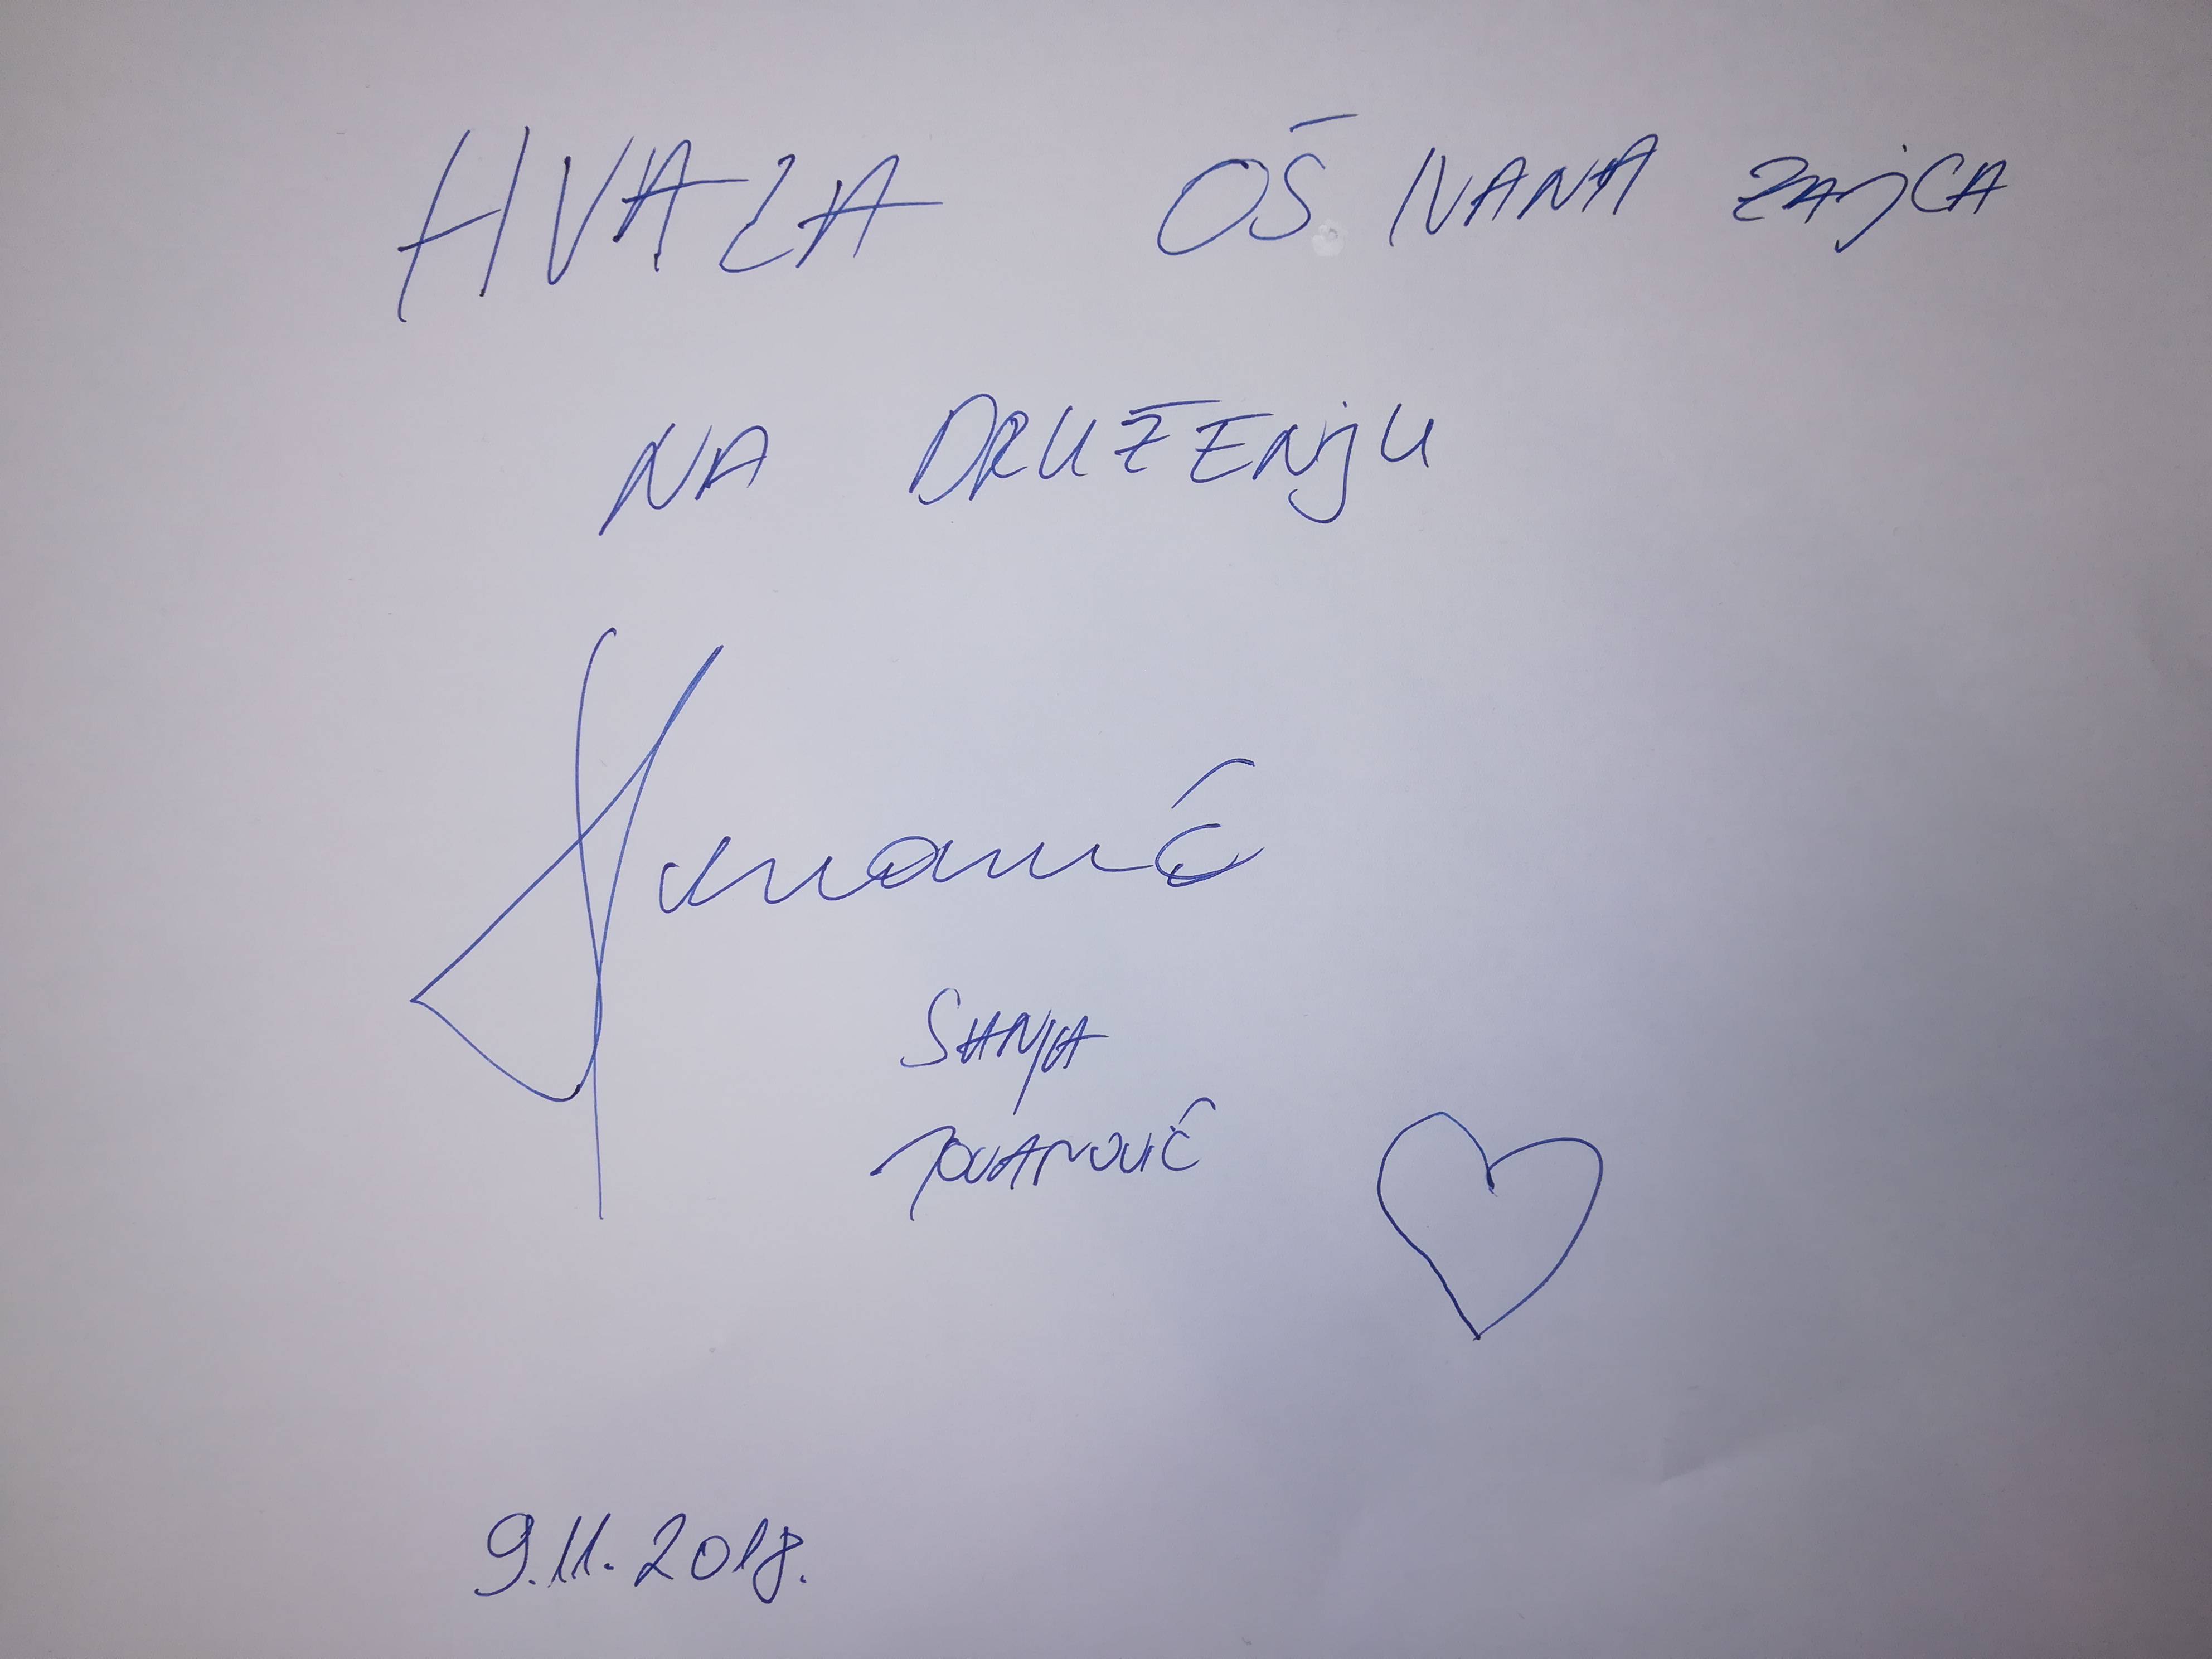 HVALA OŠ IVANA ZAJCA
NA DRUŽENJU
SANJA
JOVANOVIĆ
9.11.2018.